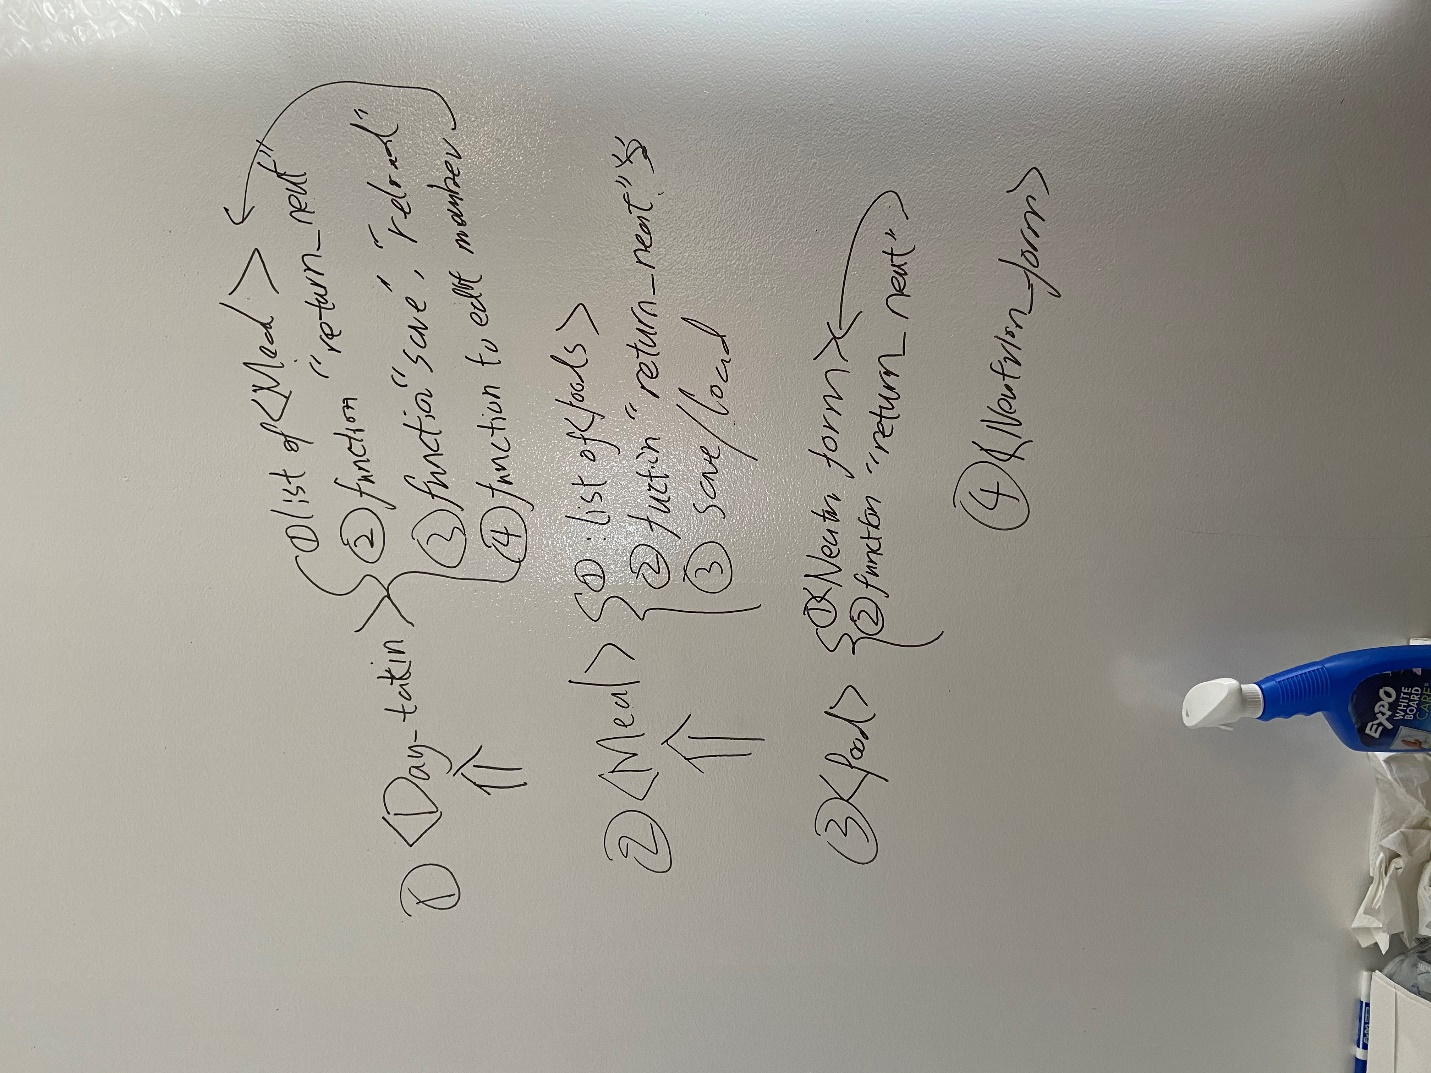 ① <Day-takin>
① list of <Meal>
② function "return_neut"
③ function "save", "reload"
④ function to edit member.
② <Meal>
① : list of <foods>
② fuction "return_neut".
③ save/load
③ <food>
① <Neutri form>
② function "return_neut"
④ <Neutrion_form>
EXPO
WHITE
BOARD
CARE